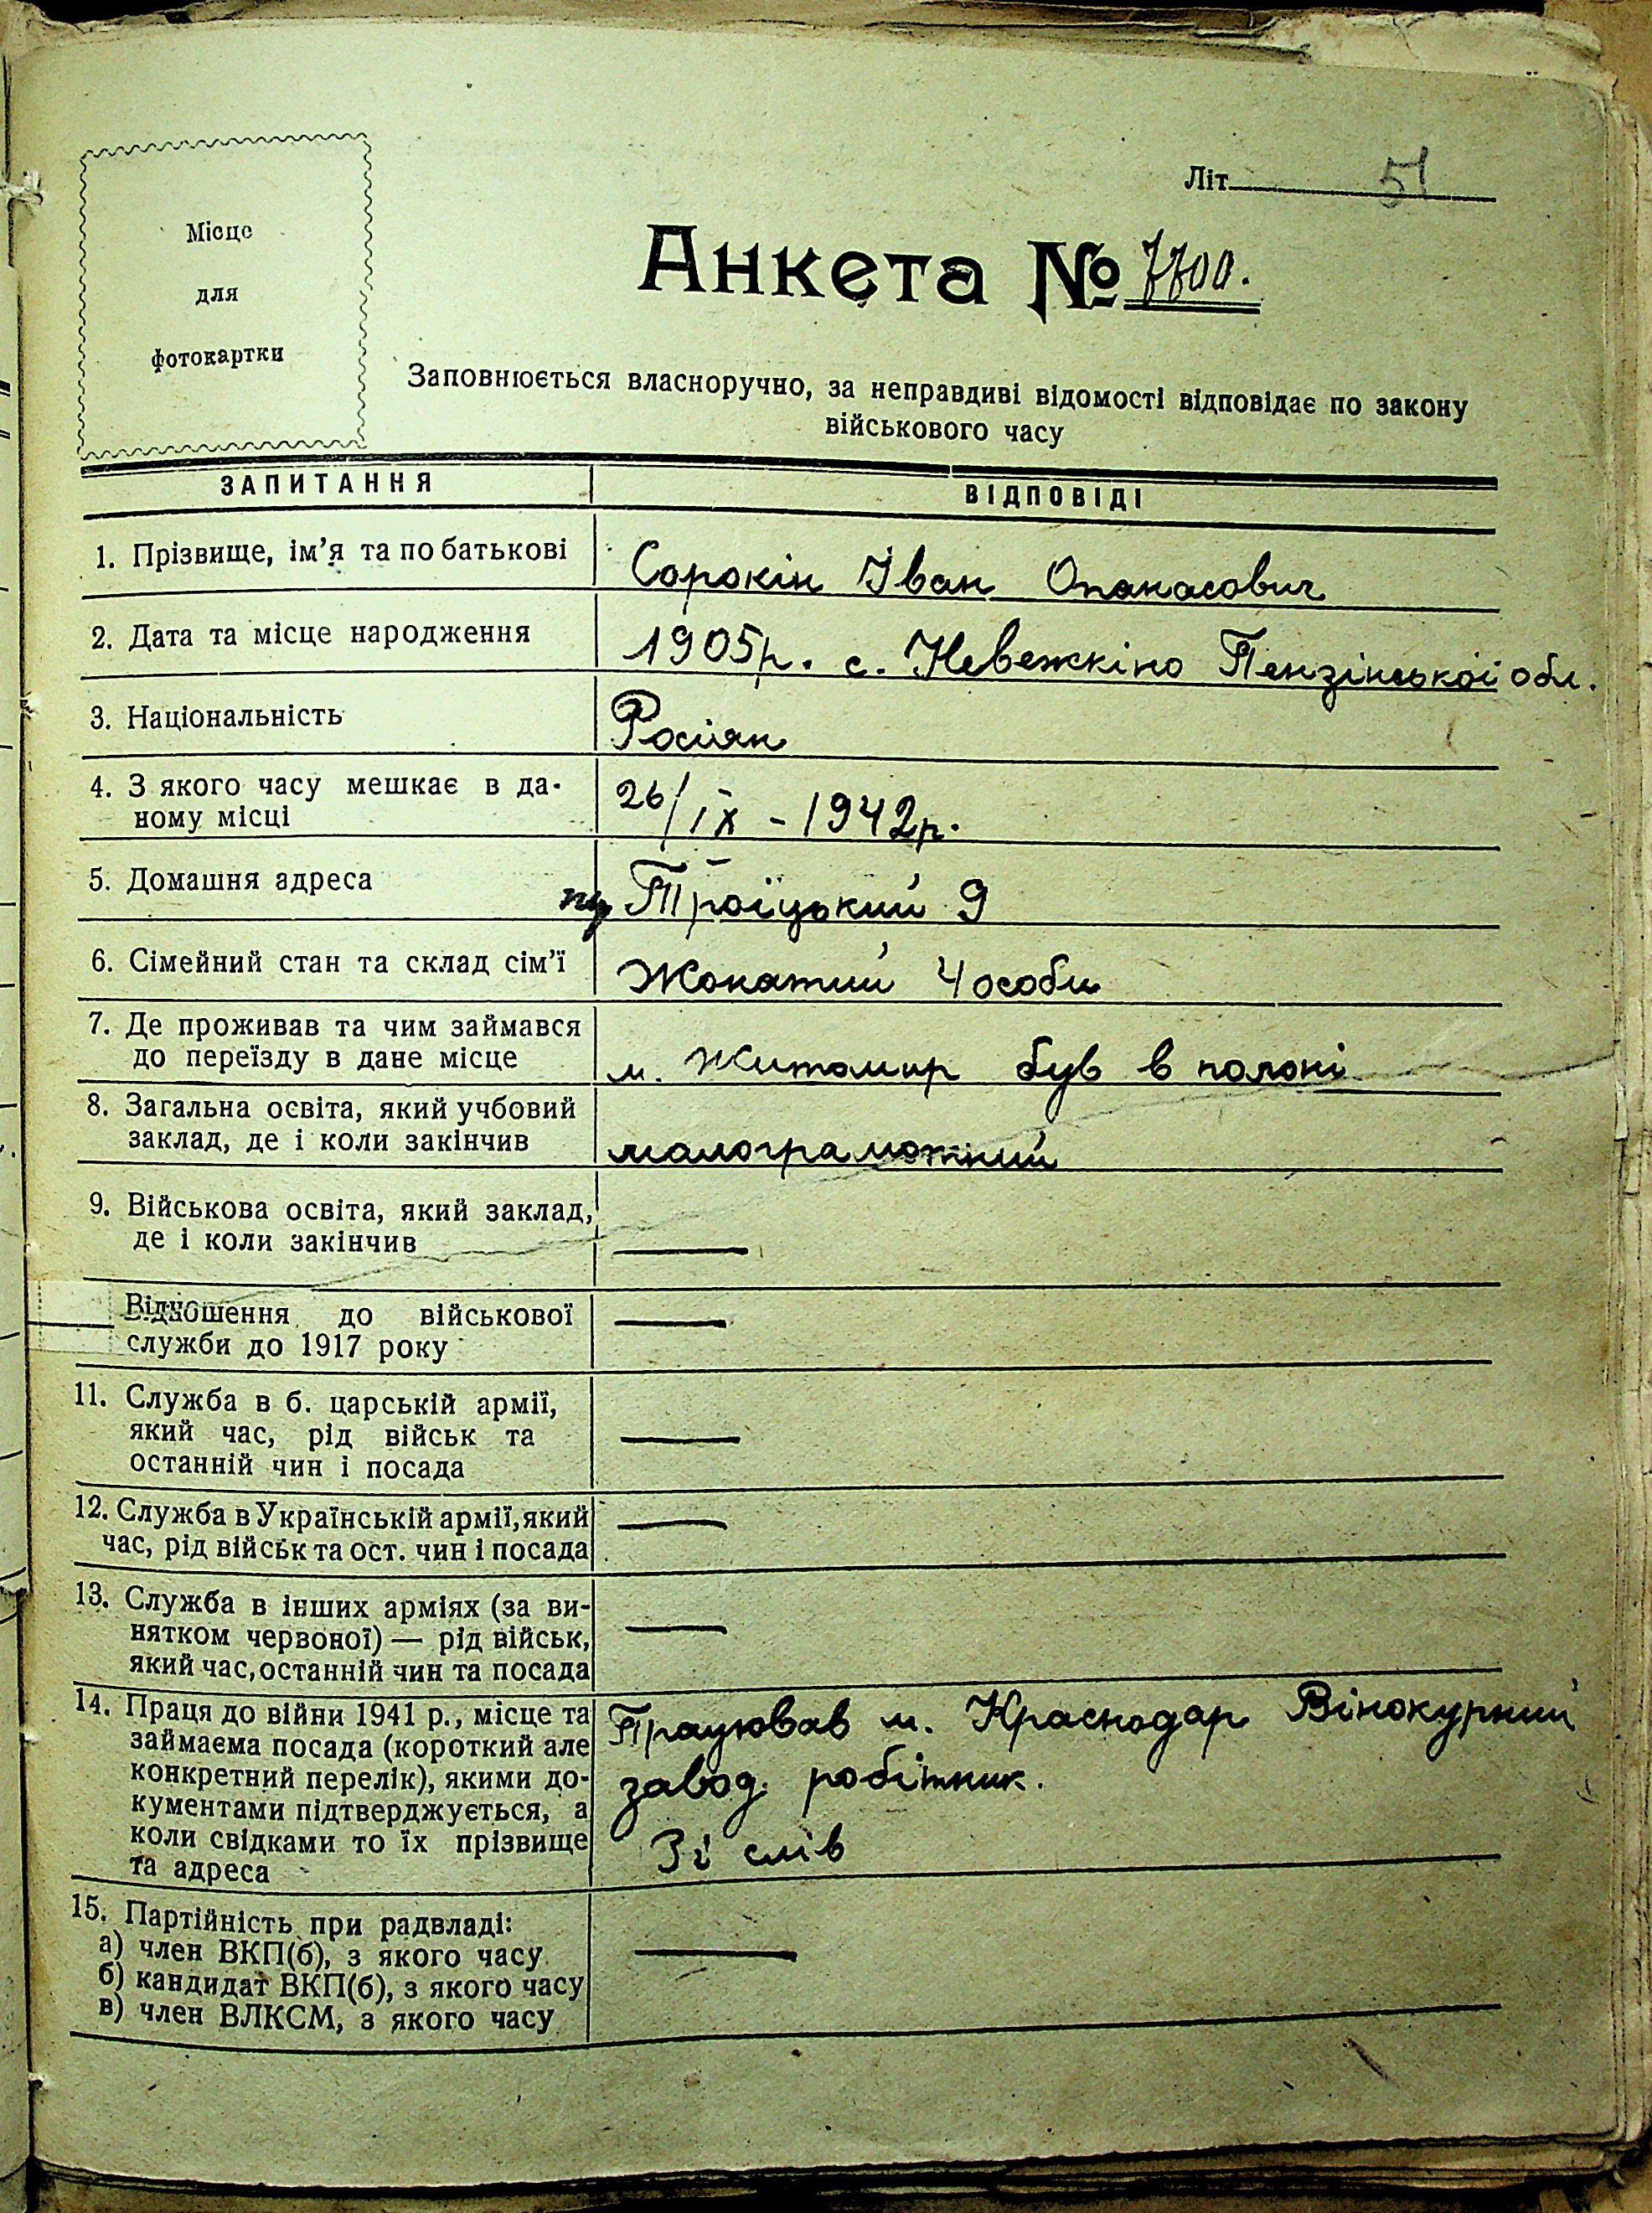 Місце
для
фотокартки
Літ. 51
Анкета № 7700.
Заповнюється власноручно, за неправдиві відомості відповідає по закону
військового часу
ЗАПИТАННЯ ВІДПОВІДІ
1. Прізвище, ім'я та по батькові Сорокін Іван Опанасович
2. Дата та місце народження 1905р. с. Невежкіно Пензінської обл.
3. Національність Росіян
4. З якого часу мешкає в да-
ному місці 26/IX - 1942р.
5. Домашня адреса Троїцький 9
6. Сімейний стан та склад сім'ї Жонатий 4 особи
7. Де проживав та чим займався
до переїзду в дане місце м. Житомир був в полоні
8. Загальна освіта, який учбовий
заклад, де і коли закінчив малограмотний
9. Військова освіта, який заклад,
де і коли закінчив —
Відношення до військової —
служби до 1917 року
11. Служба в б. царській армії,
який час, рід військ та —
останній чин і посада
12. Служба в Українській армії, який —
час, рід військ та ост. чин і посада
13. Служба в інших арміях (за ви-
нятком червоної) — рід військ, —
який час, останній чин та посада
14. Праця до війни 1941 р., місце та Працював м. Краснодар Вінокурний
займаєма посада (короткий але
конкретний перелік), якими до- завод. робітник.
кументами підтверджується, а
коли свідками то їх прізвище Зі слів
та адреса
15. Партійність при радвладі:
а) член ВКП(б), з якого часу —
б) кандидат ВКП(б), з якого часу
в) член ВЛКСМ, з якого часу